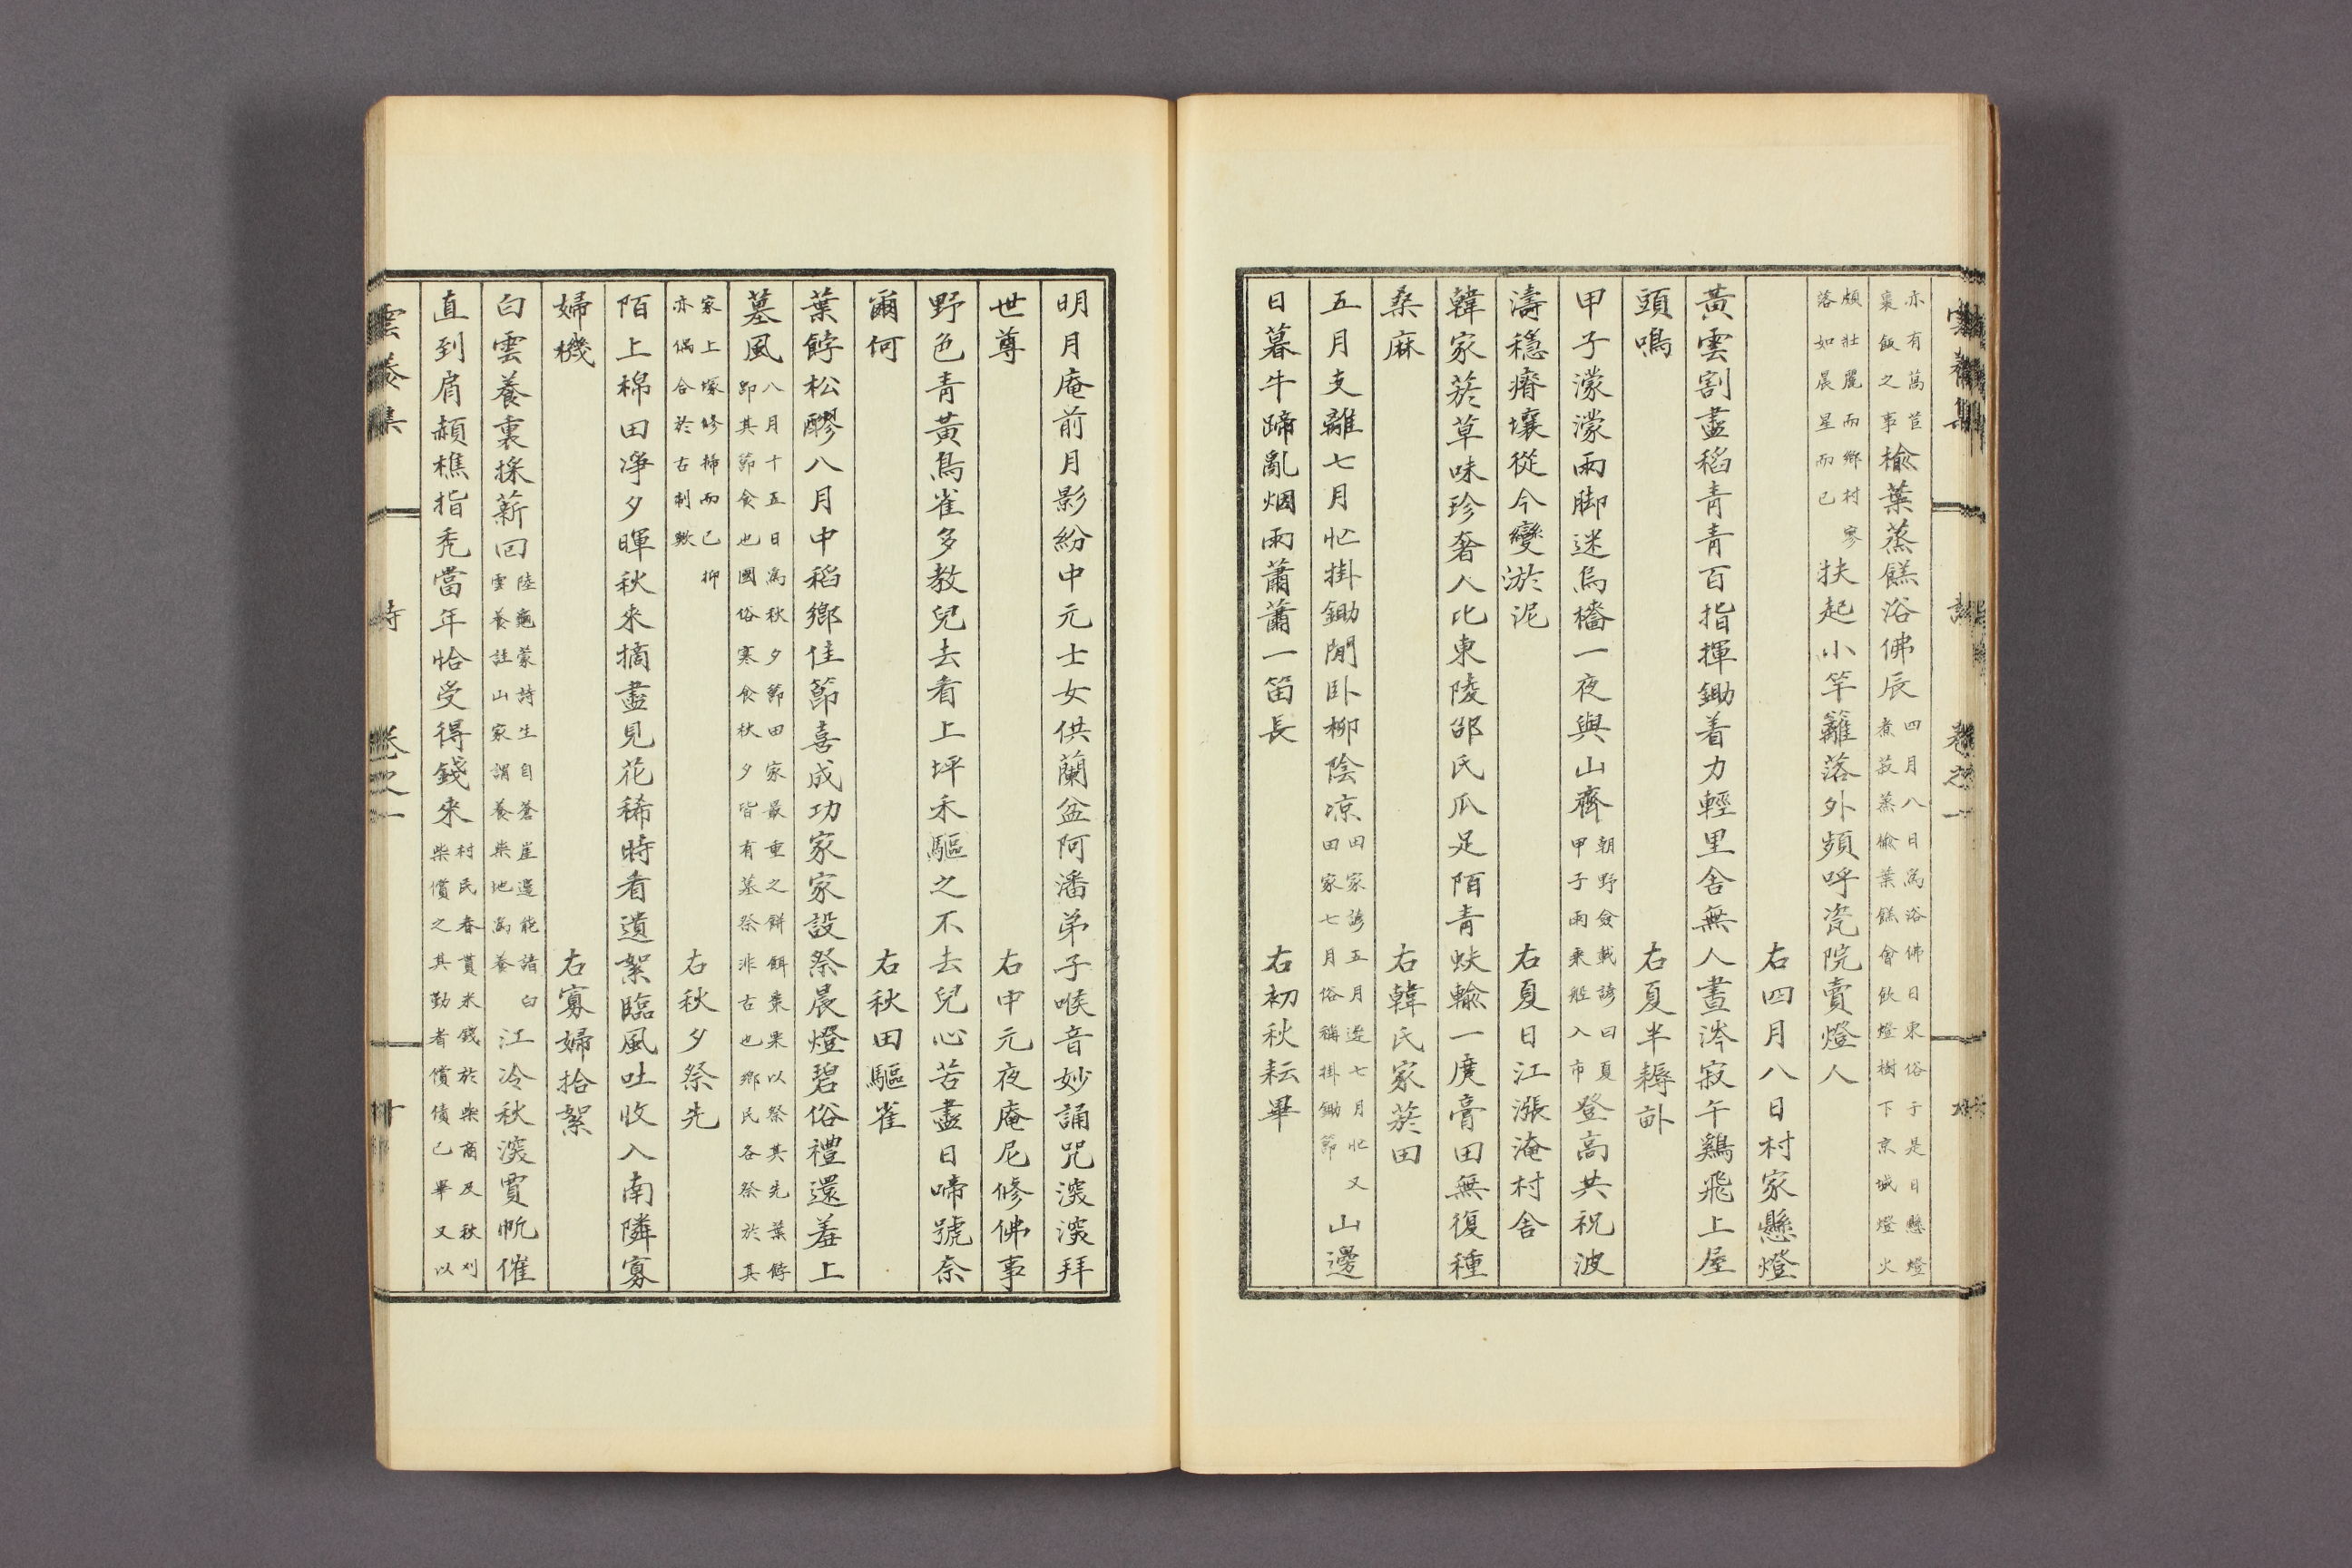 亦有萬苣
裹飯之事
楡葉蒸餻浴佛辰
四月八日爲浴佛日東俗于是日懸燈
煮菽蒸楡葉餻會飮燈樹下京城燈火
頗壯麗而鄉村寥
落如晨星而已
扶起小竿籬落外頻呼瓷院賣燈人
右四月八日村家懸燈
黃雲割盡稻靑靑百指揮鋤着力輕里舍無人晝涔寂午鷄飛上屋
頭鳴
右夏半耨畝
甲子濛濛雨脚迷烏檣一夜與山齊
朝野僉載諺曰夏
甲子雨乘船入市
登高共祝波
濤穩瘠壤從今變淤泥
右夏日江漲淹村舍
韓家菸草味珍奢人比東陵邵氏瓜足陌靑蚨輸一廛膏田無復種
桑麻
右韓氏家菸田
五月支離七月忙掛鋤閒卧柳陰凉
田家諺五月遲七月忙又
田家七月俗稱掛鋤節
山邊
日暮牛蹄亂烟雨蕭蕭一笛長
右初秋耘畢
明月庵前月影紛中元士女供蘭盆阿潘弟子喉音妙誦咒深深拜
世尊
右中元夜庵尼修佛事
野色靑黃鳥雀多教兒去看上坪禾驅之不去兒心苦盡日啼號奈
爾何
右秋田驅雀
葉餑松醪八月中稻鄉佳節喜成功家家設祭晨燈碧俗禮還羞上
墓風
八月十五日爲秋夕節田家最重之餠餌棗栗以祭其先葉餑
卽其節食也國俗寒食秋夕皆有墓祭非古也鄉民各祭於其
家上塚修掃而已抑
亦偶合於古制歟
右秋夕祭先
陌上棉田凈夕暉秋來摘盡見花稀時看遺絮臨風吐收入南隣寡
婦機
右寡婦拾絮
白雲養裏採薪回
陸龜蒙詩生自蒼崖邊能諳白
雲養註山家謂養柴地爲養
江冷秋深賈帆催
直到肩赬樵指禿當年恰受得錢來
村民春貰米錢於柴商及秋刈
柴償之其勤者償債已畢又以
雲養集
詩
卷之一
十